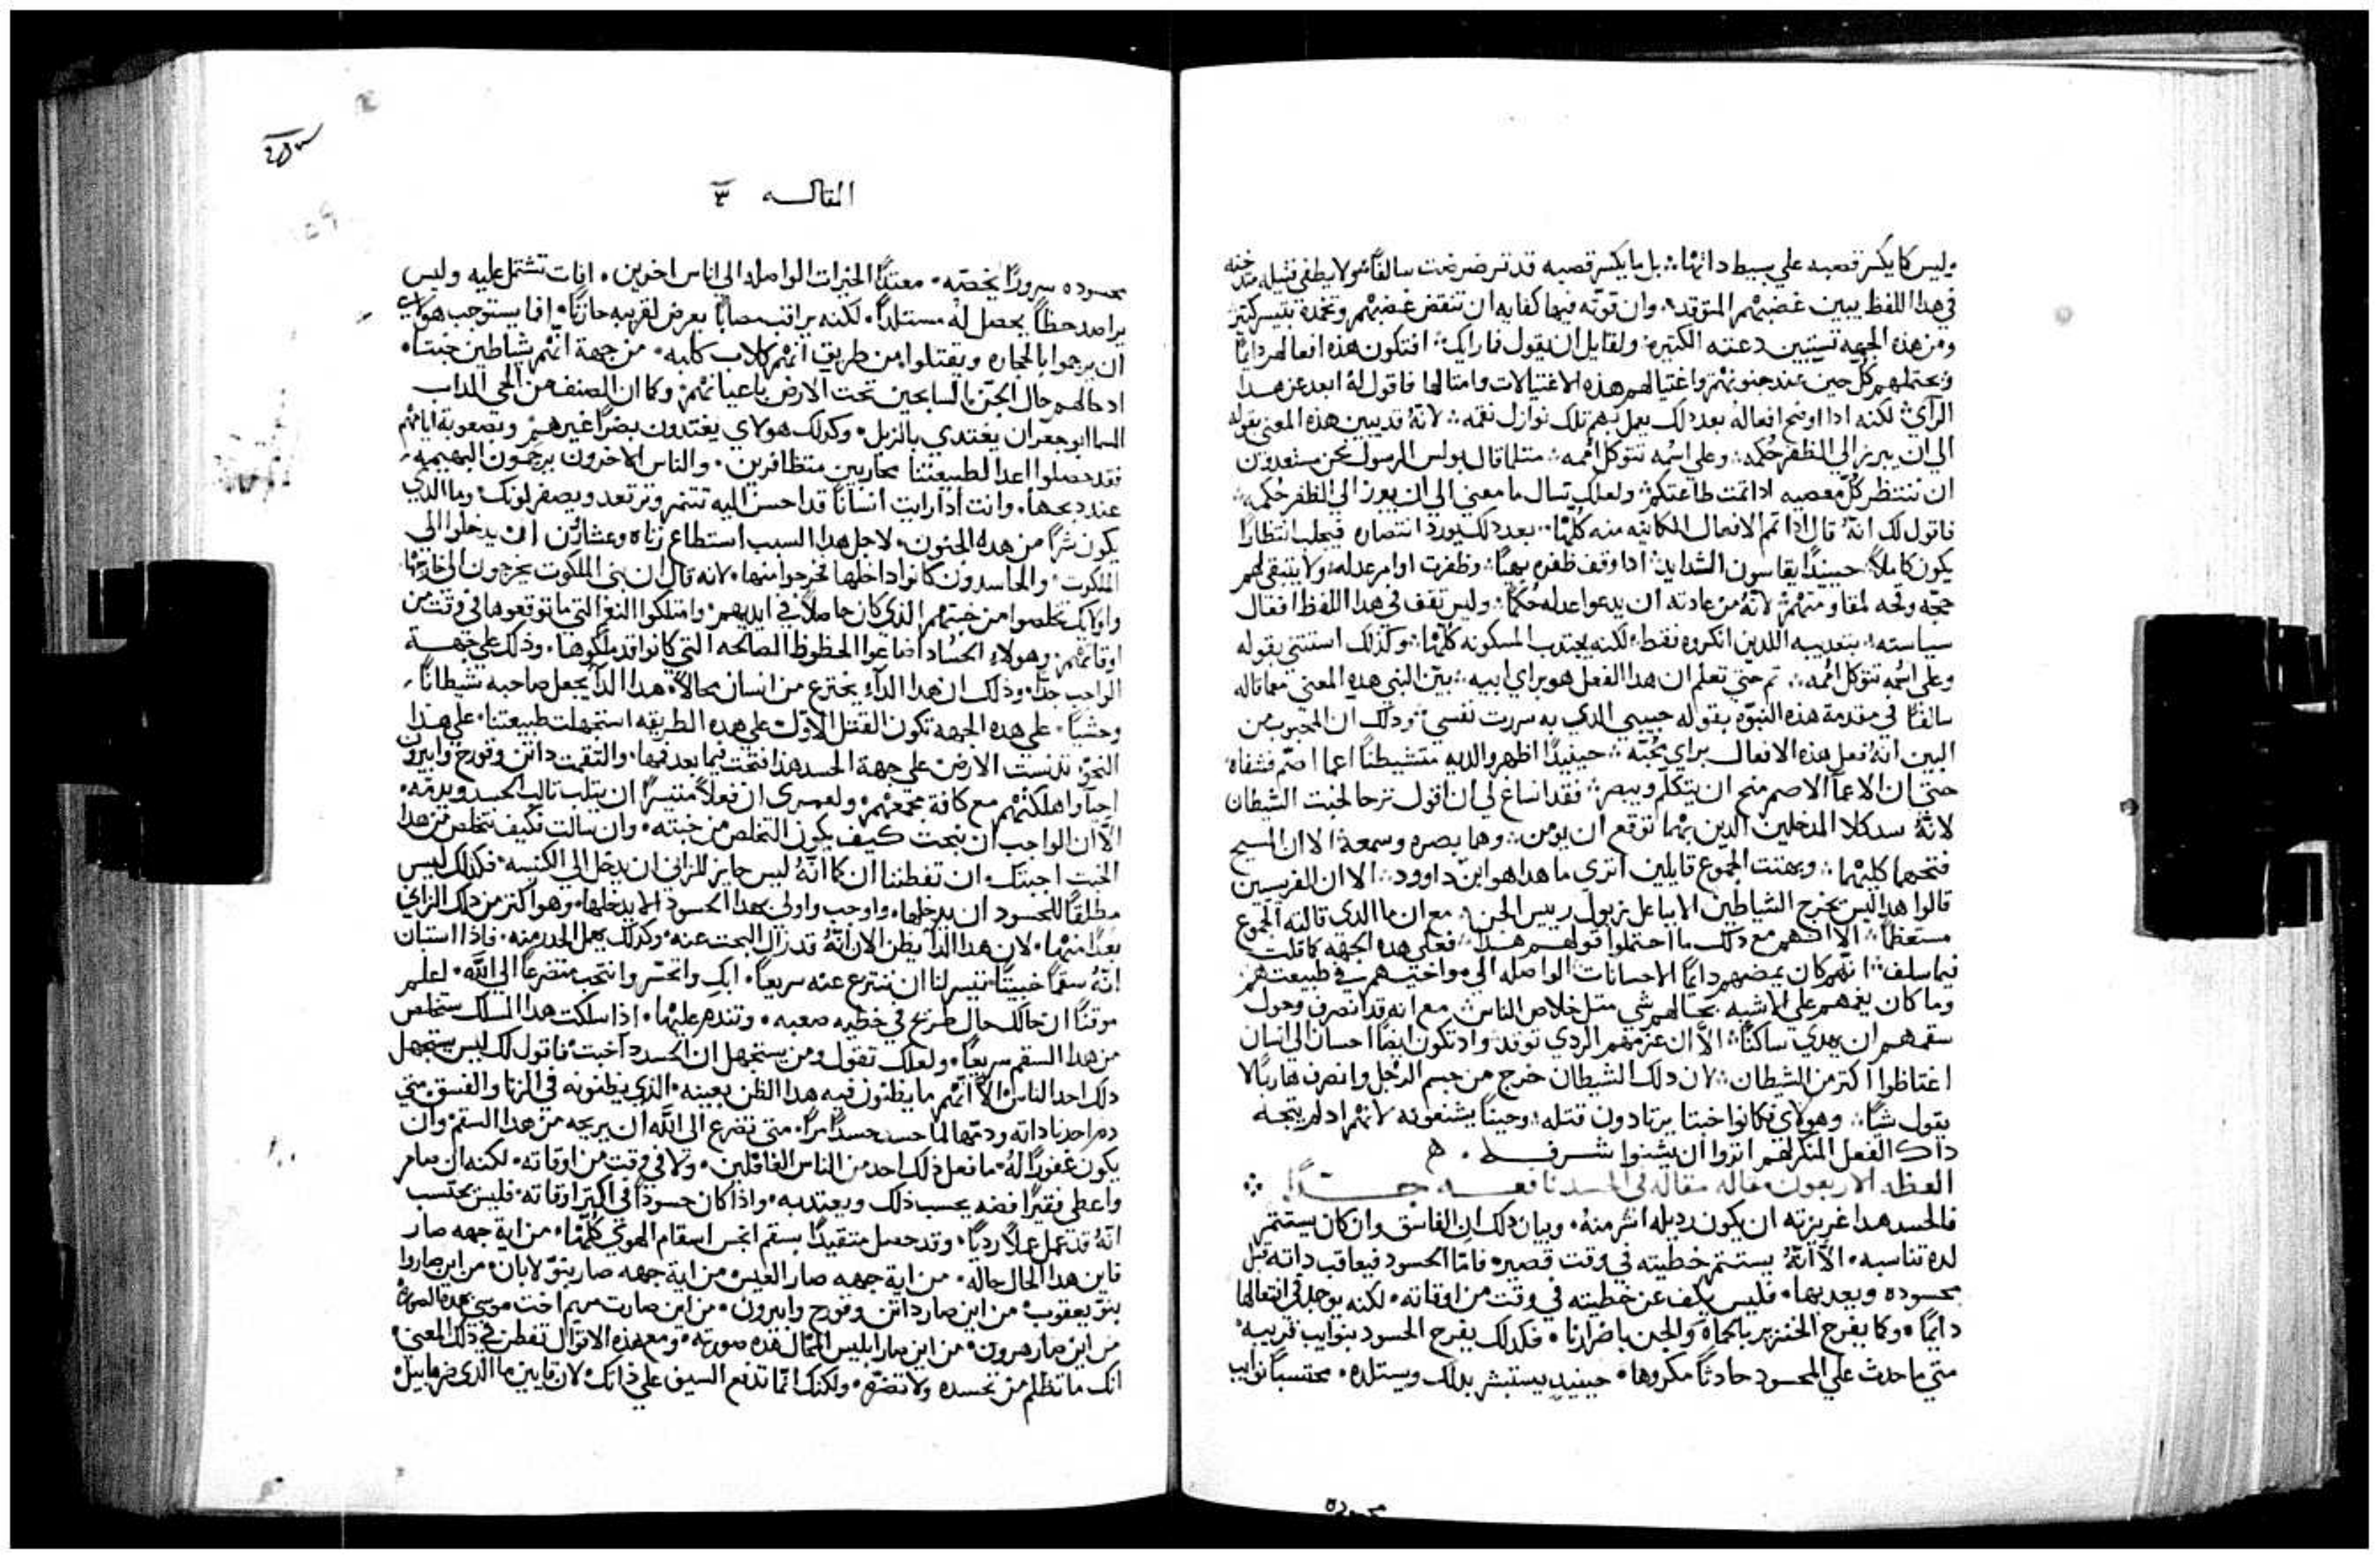 وليس كما يكسر قصبه علي بسيط داتها بل ما يكسر قصبه قد ترضرضت سالفًا ولا يطفي فتيله مدخنه
في هدا اللفظ يبين غضبهم المتوقد وان قوته فيها كفايه ان تنقض غضبهم وتخمده بتيسر كتير
ومن هذه الجهه تستبين دعته الكتيره ولقايل ان يقول فما رايك افتكون هذه افعالهم دايمًا
ويحتملهم كل حين عند جنونهم واغتيالهم هذه الاغتيالات وامتالها فاقول له ابعد عن هدا
الراي لكنه ادا اوضح افعاله بعد دلك يعمل بهم تلك نوازل نقمه لانه قد يبين هذه المعني بقوله
الي ان يبرز الي الظفر حكمه وعلي اسمه تتوكل امم متلما قال بولس الرسول نحن مستعدون
ان ننتظر كل معصيه ادا تمت طاعتكم ولعلك تسال ما معني الي ان يبرز الي الظفر حكمه
فاقول لك انه قال اذا تم الافعال الكاينه منه كلها بعد دلك يورد انتصاره فيجلب انتظارًا
يكون كاملًا حينيدًا يقاسون الشدايد ادا وقف ظفره بهيًا وظفرت اوامر عدله ولا يتبقي لهم
حجه وقحه لمقاومتهم لانه من عادته ان يدعوا عدله حكمًا وليس تقف في هدا اللفظ افعال
سياسته بتعديبه اللدين انكروه فقط لكنه يجتدب المسكونه كلها وكذلك استتني بقوله
وعلي اسمه تتوكل امم تم حتي تعلم ان هدا الفعل هو براي ابيه بين النبي هده المعني مما قاله
سالفًا في مقدمة هذه النبوه بقوله حبيبي الدي به سررت نفسي ودلك ان المحبوب من
البين انه فعل هذه الافعال براي محبه حينيدًا اظهروا لديه متشيطنًا اعما اصم فشفاه
حتي ان الاعما الاصم منح ان يتكلم ويبصر فقد انساغ لي ان اقول ترحا لخبت الشيطان
لانه سد كلا المدخلين الدين بهما توقع ان يومن وهما بصره وسمعه الا ان المسيح
فتحهما كليهما وبهتت الجموع قايلين اتري ما هدا هو ابن داوود الا ان الفريسيين
قالوا هدا ليس يخرج الشياطين الا بباعلزبول رييس الجن مع ان ما الدي قالته الجموع
مستعظمًا الا انهم مع دلك ما احتملوا قولهم هدا فعلي هده الجهه كما قلت
فيما سلف انهم كان يمضهم دايمًا الاحسانات الواصله الي مواخيهم في طبيعتهم
وما كان يغمهم علي الاشبه بحالهم شي متل خلاص الناس مع انه قد انصرف وحول
سقمهم ان يهدي ساكنًا الا ان عزمهم الردي توقد واد تكون ايضًا احسان الي انسان
اغتاظوا اكتر من الشيطان لان دلك الشيطان خرج من جسم الرجل وانصرف هاربًا لا
يقول شيًا وهولاي فكانوا خبتا يرتادون قتله وحينًا يشنعونه لانهم اد لم يتجه
داك الفعل المنكر لهم اتروا ان يشنوا شرفه
العظه الاربعون مقاله مقاله في الحسد نافعه جدًا
فالحسد هدا غريزته ان يكون رديله اشر منه وبيان دلك ان الفاسق وان كان يستتمر
لده تناسبه الا انه يستتم خطيته في وقت قصير فاما الحسود فيعاقب داته قبل
محسوده ويعدبها فليس يكف عن خطيته في وقت من اوقاته لكنه يوجد في افتعالها
دايمًا وكما يفرح الخنزير بالحماه والجن باضرارنا فكدلك يفرح الحسود بنوايب قريبه
متي ما حدث علي المحسود حادثًا مكروها حينيد يستبشر بدلك ويستلده محتسبًا نوايب
محسوده
المقاله ٣
محسوده سرورًا يخصه معتدًا الخيرات الواصله الي اناس اخرين افات تشتمل عليه وليس
يراصد حظًا يحصل له مستلدًا لكنه يراقب مصابًا يعرض لقريبه حازنًا افما يستوجب هولاي
ان يرجموا بالحجاره ويقتلوا من طريق انهم كلاب كلبه من جهة انهم شياطين خبتا
اد حالهم حال الجن السابحين تحت الارض باعيانهم وكما ان الصنف من الحي الداب
المسما ابو جعران يغتدي بالزبل وكدلك هولاي يغتدون بضرا غيرهم وتصعوبة اياهم
فقد حصلوا اعدا لطبيعتنا محاربين متظافرين والناس الاخرون يرحمون البهيميه
عند دبحها وانت ادا رايت انسانًا قد احسن اليه تتنمر وترتعد ويصفر لونك وما الدي
يكون شرًا من هده الجنون لاجل هدا السبب استطاع زناه وعشارون ان يدخلوا الي
الملكوت والحاسدون كانوا داخلها فخرجوا منها لانه قال ان بني الملكوت يخرجون الي خارجها
واولايك تخلصوا من خبتهم الذي كان حاصلًا في ايديهم وامتلكوا النعم التي ما توقعوها في وقت من
اوقاتهم وهولاء الحساد اضاعوا الحظوظ الصالحه التي كانوا قد ملكوها وذلك علي جهة
الواجب جدًا وذلك ان هدا الداء يخترع من انسان محالًا هدا الدا يجعل صاحبه شيطانًا
وحشيًا علي هده الجهه تكون القتل الاول علي هده الطريقه استجهلت طبيعتنا علي هدا
النحو تدنست الارض علي جهة الحسد هذا فتحت فيما بعد فمها والتقمت داتن وقورح وابيرون
احيآ واهلكتهم مع كافة مجمعهم ولعمري ان فعلًا متيسرًا ان يتلب تالب الحسد ويدمه
الا ان الواجب ان نبحت كيف يكون التخلص من خبته وان سالت فكيف نتخلص من هدا
الخبت اجبتك ان تفطننا ان كما انه ليس جايز للزاني ان يدخل الي الكنيسه فكدلك ليس
مطلقًا للحسود ان يدخلها واوجب واولي بهدا الحسود الا يدخلها وهو اكتر من دلك الزاي
بعدًا منها لان هدا الدا يظن الان انه قد زال البحت عنه وكدلك يهمل الحدر منه فاذا استبان
انه سقمًا خبيتًا تيسر لنا ان ننتزع عنه سريعًا ابك واتحسر وانتحب متضرعًا الي الله اعلم
موقنًا ان حالك حال طريح في خطيه صعبه وتندم عليها اذا سلكت هدا المسلك ستخلص
من هدا السقم سريعًا ولعلك تقول ومن يستجهل ان الحسد دا خبت فاقول لك ليس يستجهل
دلك احد الناس الا انهم ما يظنون فيه هدا الظن بعينه الذي يظنونه في الزنا والفسق متي
دم احدنا داته ودمها لما حسد حسدًا مرًا متي تضرع الي الله ان يريحه من هدا السقم وان
يكون غفورًا له ما فعل ذلك احد من الناس الغافلين ولا في وقت من اوقاته لكنه ان صام
واعطي فقيرًا فضه يحسب ذلك ويعتد به واذا كان حسودًا في اكتر اوقاته فليس يحتسب
انه قد عمل عملًا رديًا وقد حصل متقيدًا بسقم انجس اسقام الهوي كلها من اية جهه صار
قاين هدا الحال حاله من اية جهه صار العيس من اية جهه صار بنو لابان من اين صاروا
بنو يعقوب من اين صار داتن وقورح وابيرون من اين صارت مريم اخت موسي بهده الصوره
من اين صار هرون من اين صار ابليس المحال هده صورته ومع هذه الاقوال تفطن في ذلك المعني
انك ما تظلم من تحسده ولا تضره ولكنك انما تدفع السيف علي ذاتك لان قايين ما الذي ضر هابيل